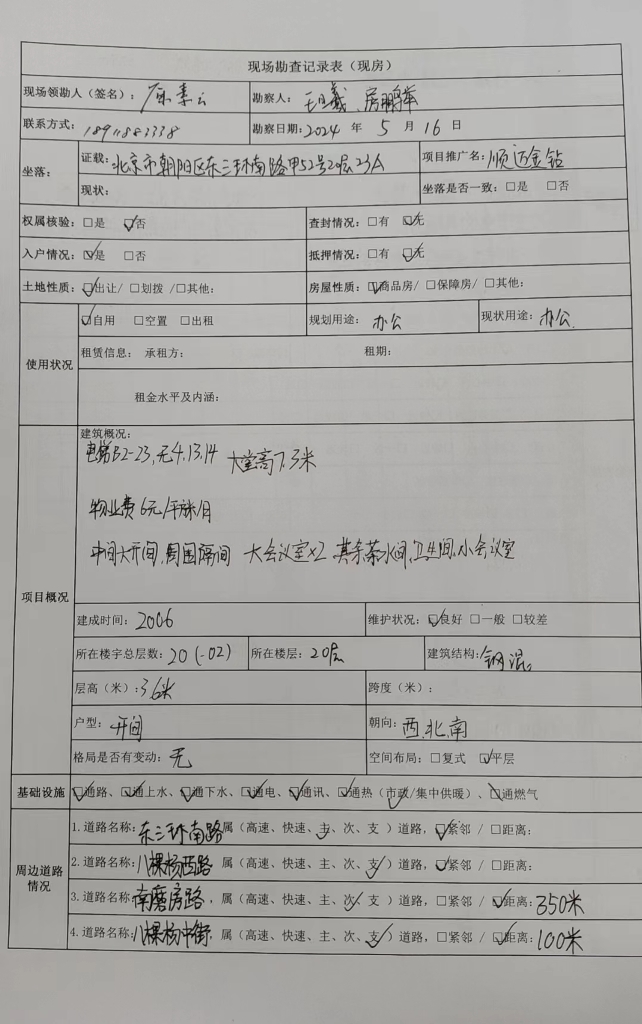 现场勘查记录表（现房）
现场领勘人（签名）： 勘察人：
联系方式：18911883338 勘察日期：2024 年 5 月 16 日
坐落： 证载：北京市朝阳区东三环南路甲52号20层23A 项目推广名：顺迈金钻
现状： 坐落是否一致：□是 □否
权属核验：□是 ☑否 查封情况：□有 ☑无
入户情况：☑是 □否 抵押情况：□有 ☑无
土地性质：☑出让/ □划拨 /□其他： 房屋性质：☑商品房/ □保障房/ □其他：
使用状况 ☑自用 □空置 □出租 规划用途：办公 现状用途：办公
租赁信息： 承租方： 租期：
租金水平及内涵：
项目概况 建筑概况：
电梯B2-23,无4.13.14 大堂高7.3米
物业费6元/平米/月
中间大开间,周围隔间 大会议室×2 其余茶水间,卫生间,小会议室
建成时间：2006 维护状况：☑良好 □一般 □较差
所在楼宇总层数：20(-02) 所在楼层：20层 建筑结构：钢混
层高（米）：3.6米 跨度（米）：
户型：开间 朝向：西.北.南
格局是否有变动：无 空间布局：□复式 ☑平层
基础设施 ☑通路、☑通上水、☑通下水、☑通电、☑通讯、☑通热（市政/集中供暖）、□通燃气
周边道路情况 1.道路名称：东三环南路属（高速、快速、主、次、支）道路，☑紧邻 / □距离：
2.道路名称：八棵杨西路 属（高速、快速、主、次、支）道路，☑紧邻 / □距离：
3.道路名称：南磨房路，属（高速、快速、主、次、支）道路，□紧邻 / ☑距离：350米
4.道路名称：八棵杨中街，属（高速、快速、主、次、支）道路，□紧邻 / ☑距离：100米